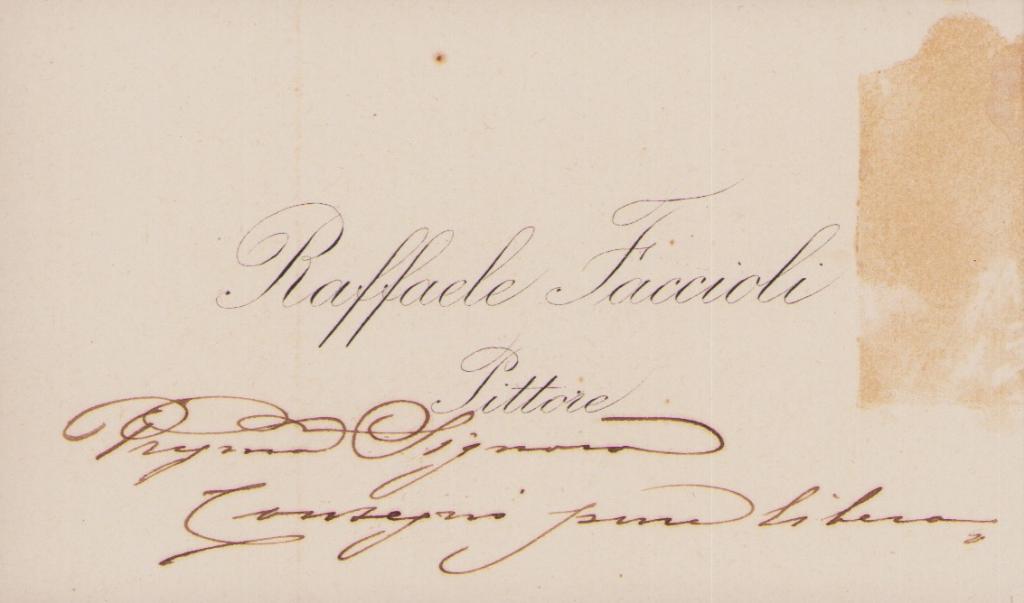 Raffaele Faccioli
Pittore
Pregma Signora
Consegni pure libera